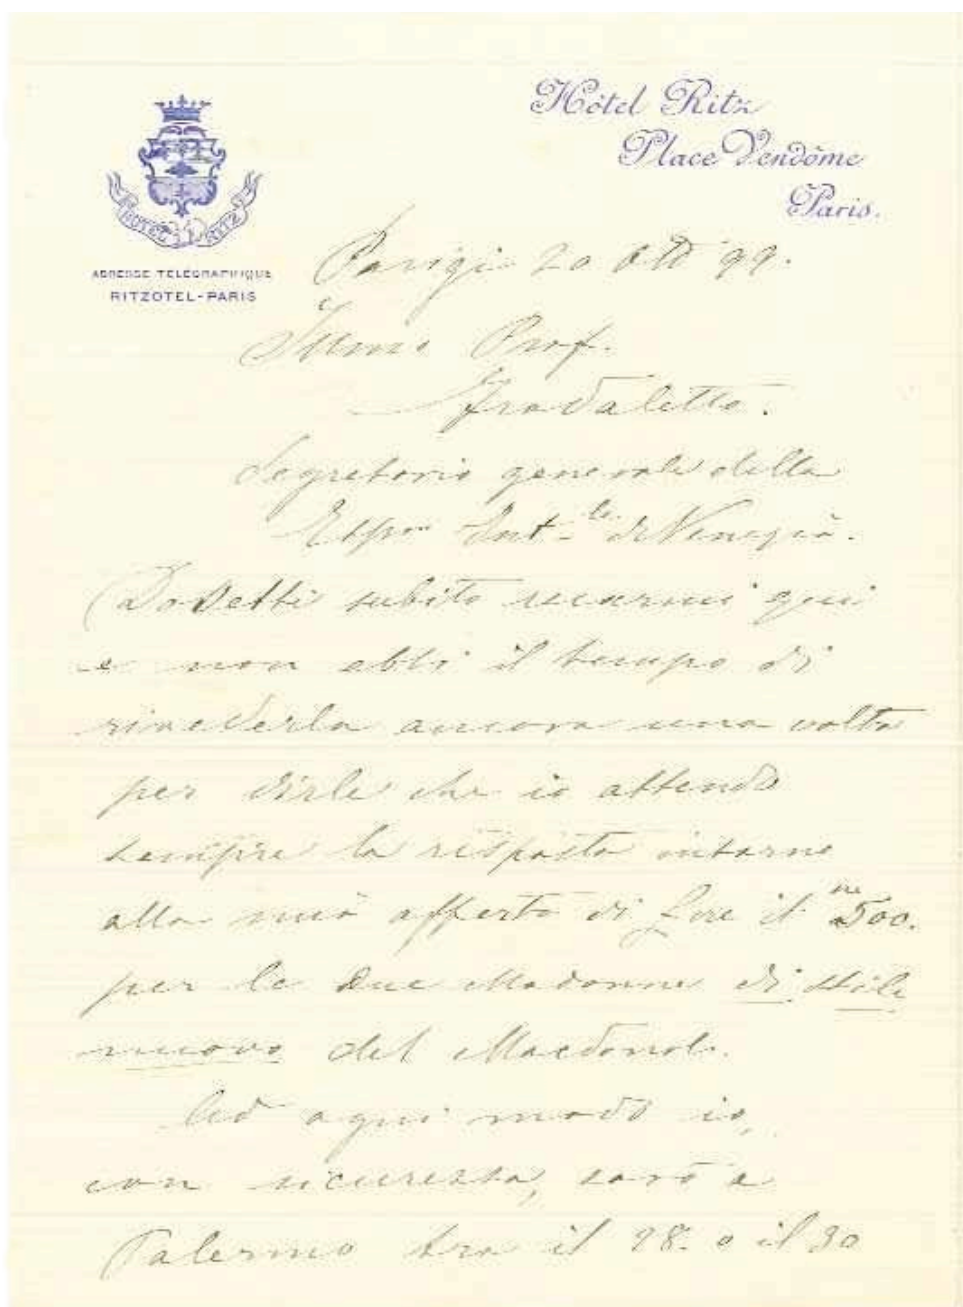 Hôtel Ritz
Place Vendôme
Paris.
HOTEL RITZ
ADRESSE TÉLÉGRAPHIQUE
RITZOTEL-PARIS
Parigi 20 Ott 99.
Prof.
Fradeletto.
Segretario generale della
Espo.ne Int.le di Venezia.
Dovetti subito recarmi qui
e non ebbi il tempo di
rivederla ancora una volta
per dirle che io attendo
sempre la risposta intorno
alla mia offerta di Lire it.ne 500.
per le due Madonne di stile
nuovo del Macdonal.
Ad ogni modo io,
con sicurezza, sarò a
Palermo tra il 28. o il 30